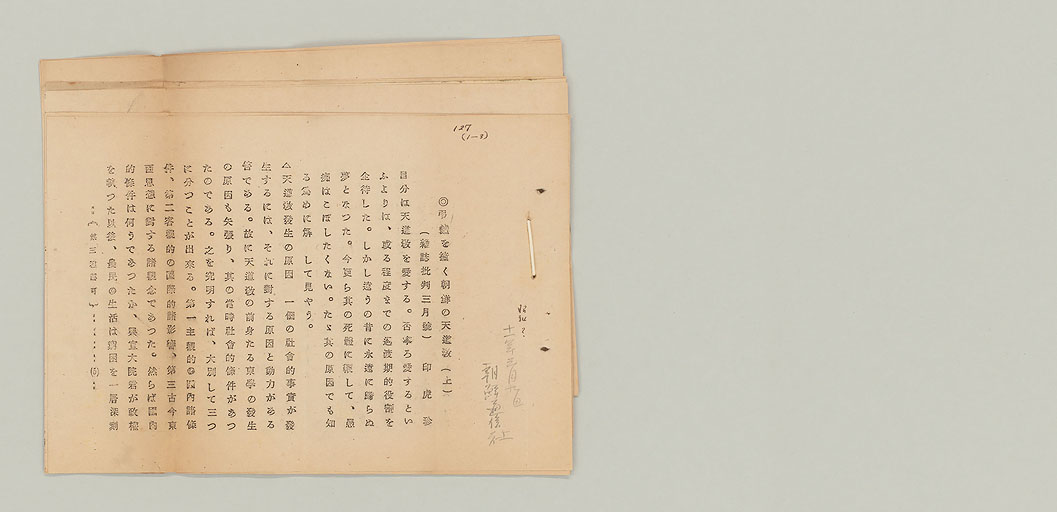 127
(1-3)
昭和?
十一年三月十九日
朝鮮通信社
◎弔鐘を撞く朝鮮の天道敎(上)
(雜誌批判三月號) 印虎
自分は天道敎を愛する。否寧ろ愛するとい
ふよりは、或る程度までの過渡期的役割を
企待した。しかし這うの昔に永遠に歸らぬ
夢となつた。今更ら其の死體に對して、愚
痴はこぼしたくない。たゞ其の原因でも知
る爲めに解 して見やう。
△天道敎發生の原因 一個の社會的事實が發
生するには、それに對する原因と動力がある
筈である。故に天道敎の前身たる東學の發生
の原因も矢張り、其の當時社會的條件があつ
たのである。之を究明すれば、大別して三つ
に分つことが出來る。第一主觀的の國內諸條
件、第二客觀的の國際的諸影響、第三古今東
西思想に對する諸觀念であつた。然らば國內
的條件は何うであつたか、興宣大院君が政權
を執つた以後、農民の生活は窮困を一層深刻
(第三種郵便 (6)